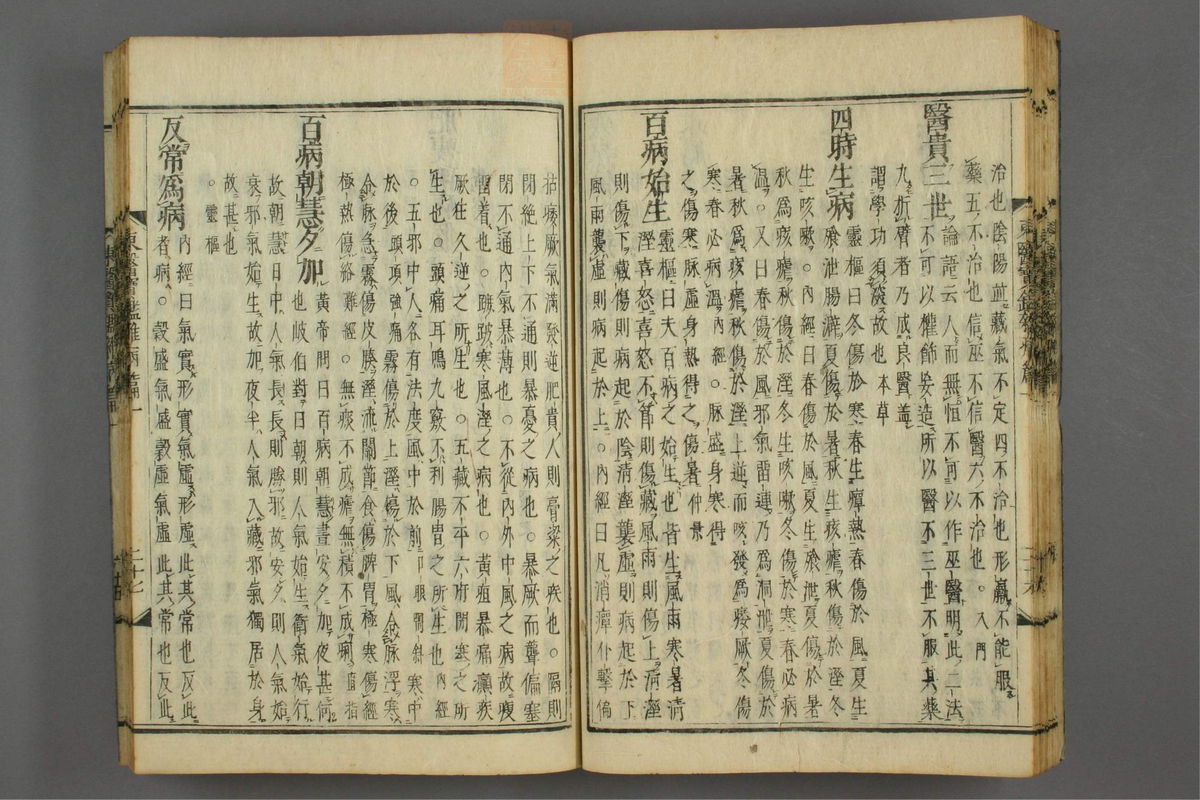 治也陰陽並藏氣不定四不治也形羸不能服
藥五不治也信巫不信醫六不治也。入門
醫貴三世 論語云人而無恒不可以作巫醫明此二法
不可以權飾妄造所以醫不三世不服其藥
九折臂者乃成良醫盖
謂學功須深故也本草
四時生病 靈樞曰冬傷於寒春生癉熱春傷於風夏生
飱泄腸澼夏傷於暑秋生痎瘧秋傷於溼冬
生咳嗽。內經曰春傷於風夏生飱泄夏傷於暑
秋爲痎瘧秋傷於溼冬生咳嗽冬傷於寒春必病
溫。又曰春傷於風邪氣留連乃爲洞泄夏傷於
暑秋爲痎瘧秋傷於溼上逆而咳發爲痿厥冬傷
寒春必病溫內經。脉盛身寒得
之傷寒脉虛身熱得之傷暑仲景
百病始生 靈樞曰夫百病之始生也皆生風雨寒暑清
溼喜怒喜怒不節則傷藏風雨則傷上清溼
則傷下藏傷則病起於陰清溼襲虛則病起於下
風雨襲虛則病起於上。內經曰凡消癉仆擊偏
枯痿厥氣滿發逆肥貴人則膏粱之疾也。隔則
閉絶上下不通則暴憂之病也。暴厥而聾偏塞
閉不通內氣暴薄也。不從內外中風之病故瘦
留着也。蹠跛寒風溼之病也。黃疸暴痛癲疾
厥狂久逆之所生也。五藏不平六府閉塞之所
生也。頭痛耳鳴九竅不利腸胃之所生也內經
。五邪中人各有法度風中於前寒中
於後 頭項強痛霧傷於上溼傷於下風令脉浮寒
令脉急霧傷皮腠溼流關節食傷脾胃極寒傷經
極熱傷絡難經。無痰不成瘧無積不成痢直指
百病朝慧夕加 黃帝問曰百病朝慧晝安夕加夜甚何
也岐伯對曰朝則人氣始生衛氣始行
故朝慧日中人氣長長則勝邪故安夕則人氣始
衰邪氣始生故加夜半人氣入藏邪氣獨居於身
故甚也
。靈樞
反常爲病 內經曰氣實形實氣虛形虛此其常也反此
者病。穀盛氣盛穀虛氣虛此其常也反此
東醫寶鑑雜病篇一